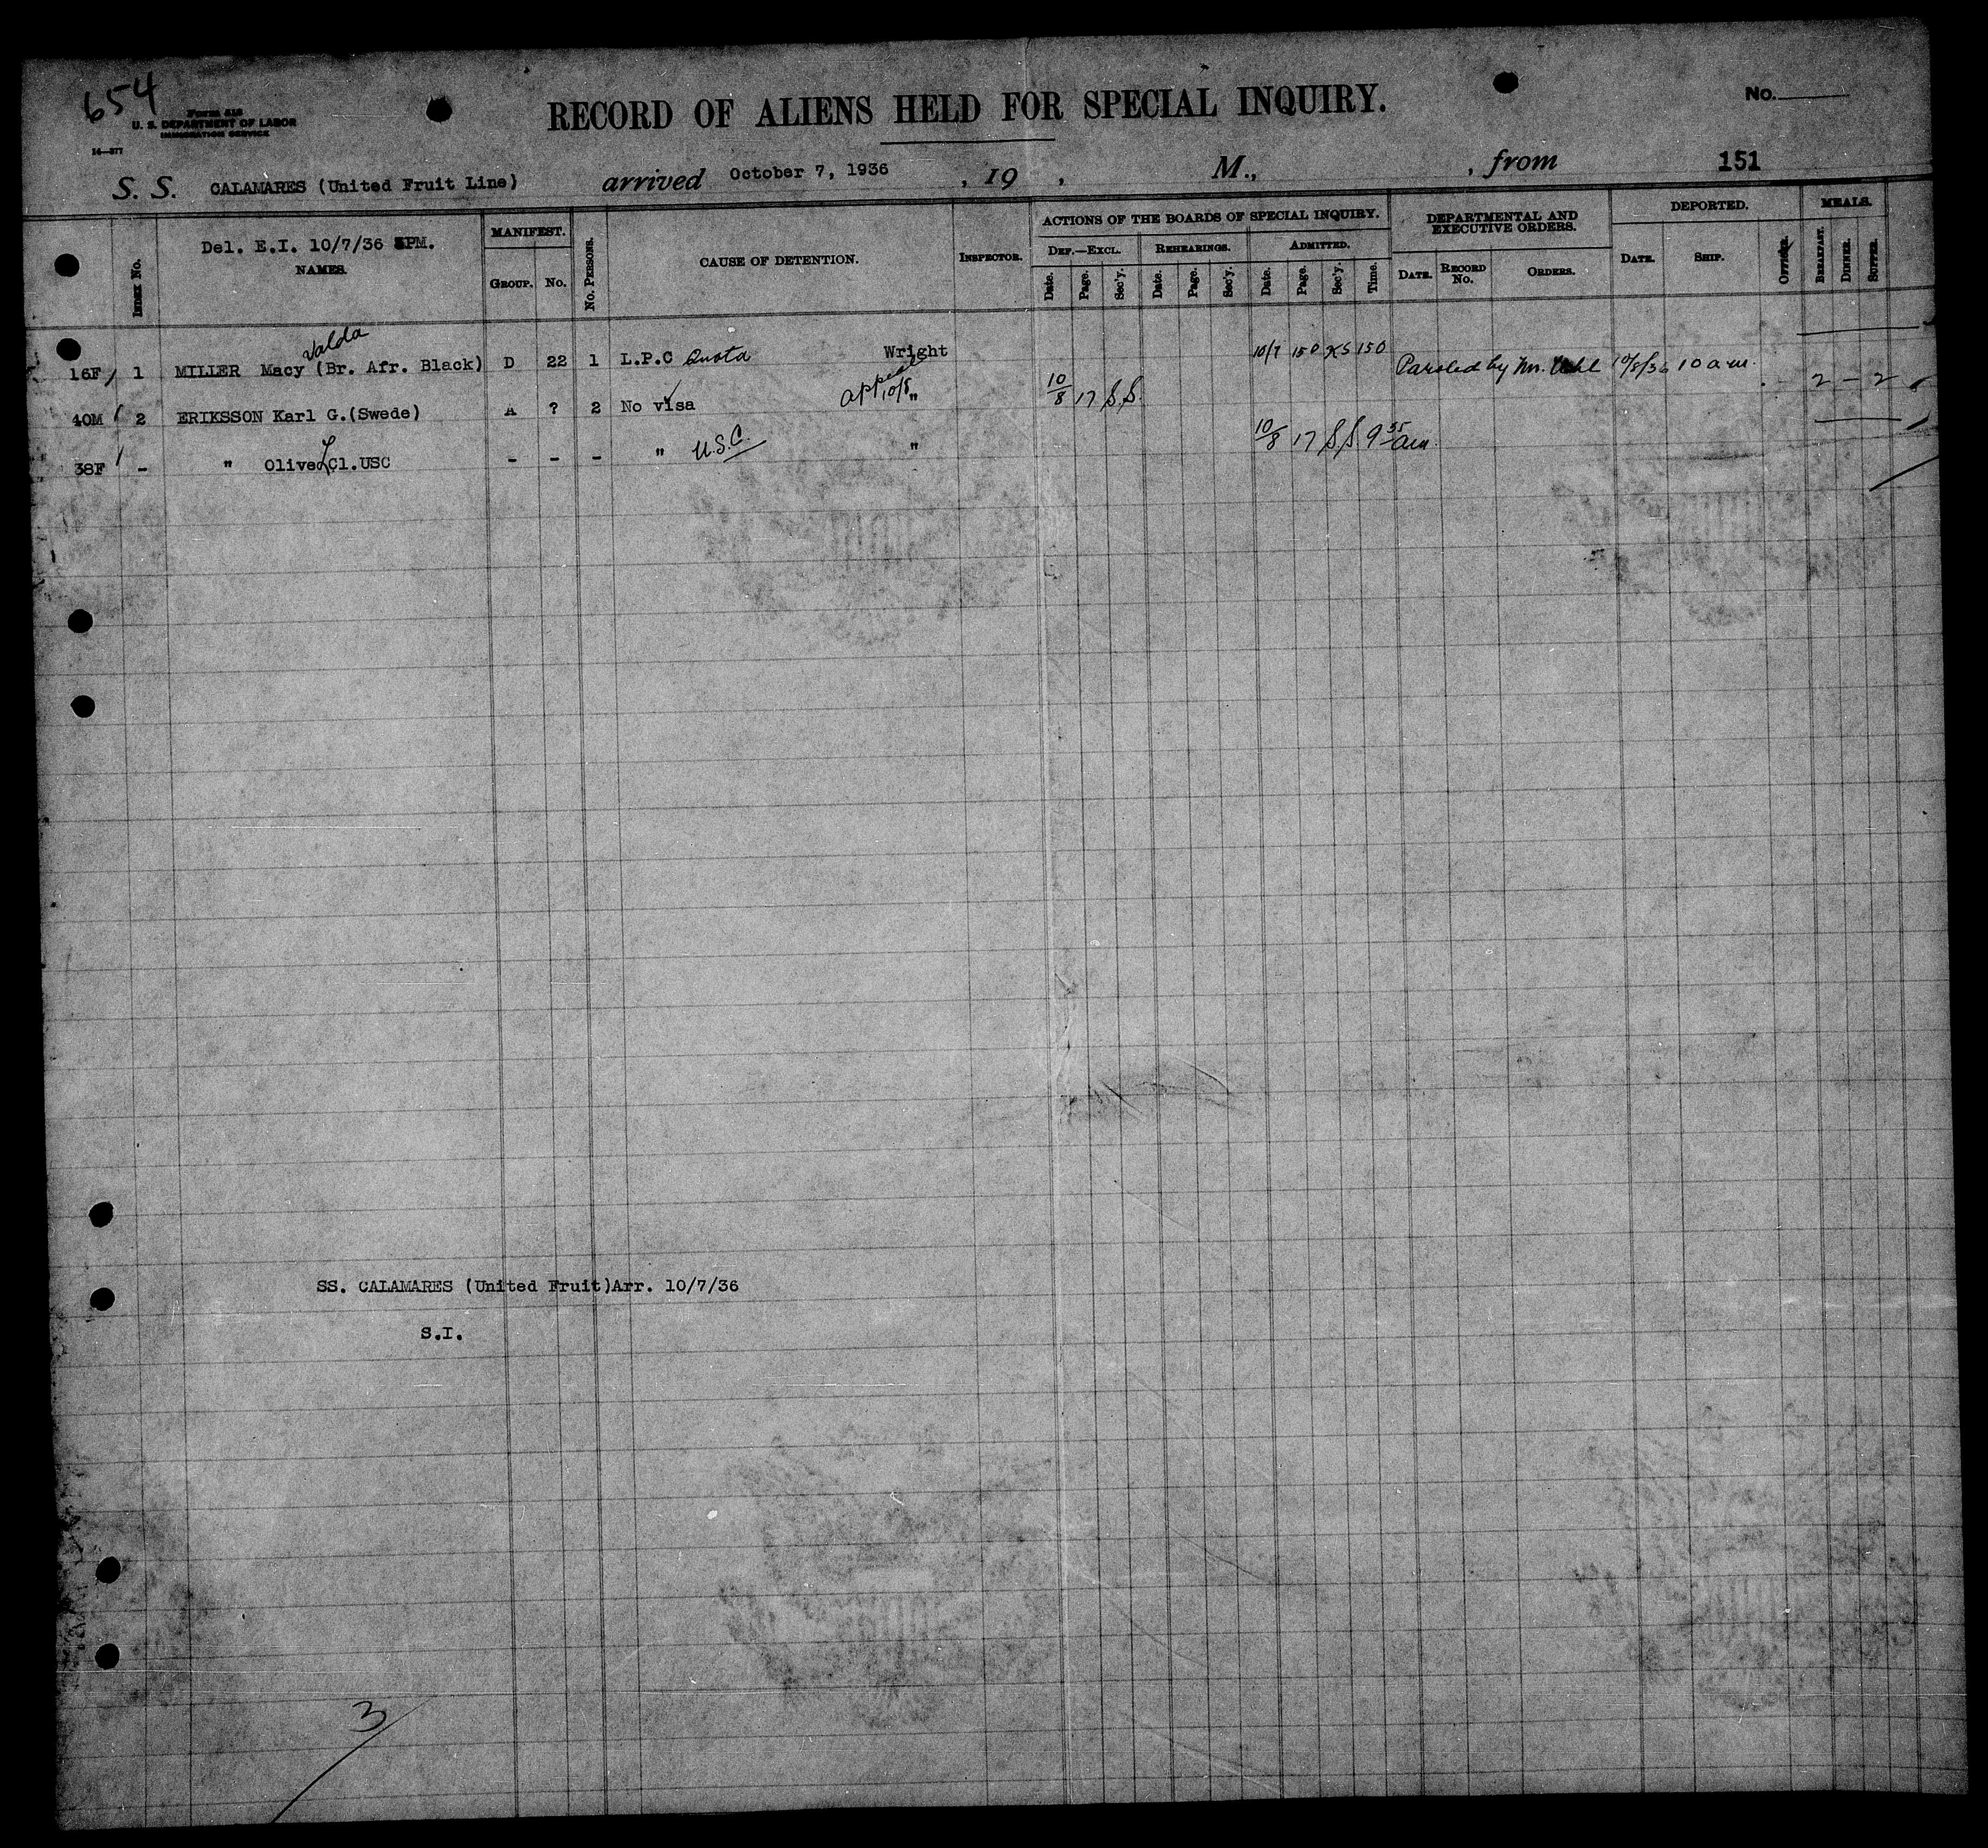 654
Form 518
U. S. DEPARTMENT OF LABOR
IMMIGRATION SERVICE
14—377
RECORD OF ALIENS HELD FOR SPECIAL INQUIRY.
No.
S. S. CALAMARES (United Fruit Line) arrived October 7, 1936 , 19 , M., , from 151
Del. E.I. 10/7/36 PM.
NAMES.
INDEX No.
MANIFEST.
GROUP. No.
No. PERSONS.
CAUSE OF DETENTION.
INSPECTOR.
ACTIONS OF THE BOARDS OF SPECIAL INQUIRY.
DEF.—EXCL. REHEARINGS. ADMITTED.
Date. Page. Sec'y. Date. Page. Sec'y. Date. Page. Sec'y. Time.
DEPARTMENTAL AND
EXECUTIVE ORDERS.
DATE. RECORD No. ORDERS.
DEPORTED.
DATE. SHIP. OFFICER.
MEALS.
BREAKFAST. DINNER. SUPPER.
Valda
16F 1 MILLER Macy (Br. Afr. Black) D 22 1 L.P.C Quota Wright 10/7 150 KS 150
Paroled by Mr. Uhl 10/8/36 10 am.
40M 2 ERIKSSON Karl G.(Swede) A ? 2 No visa Appeals 10/8 " 10/8 17 S.S. 2 — 2
38F - " Olive L Cl.USC - - - " U.S.C. " 10/8 17 S.S. 9 35 am
SS. CALAMARES (United Fruit)Arr. 10/7/36
S.I.
3